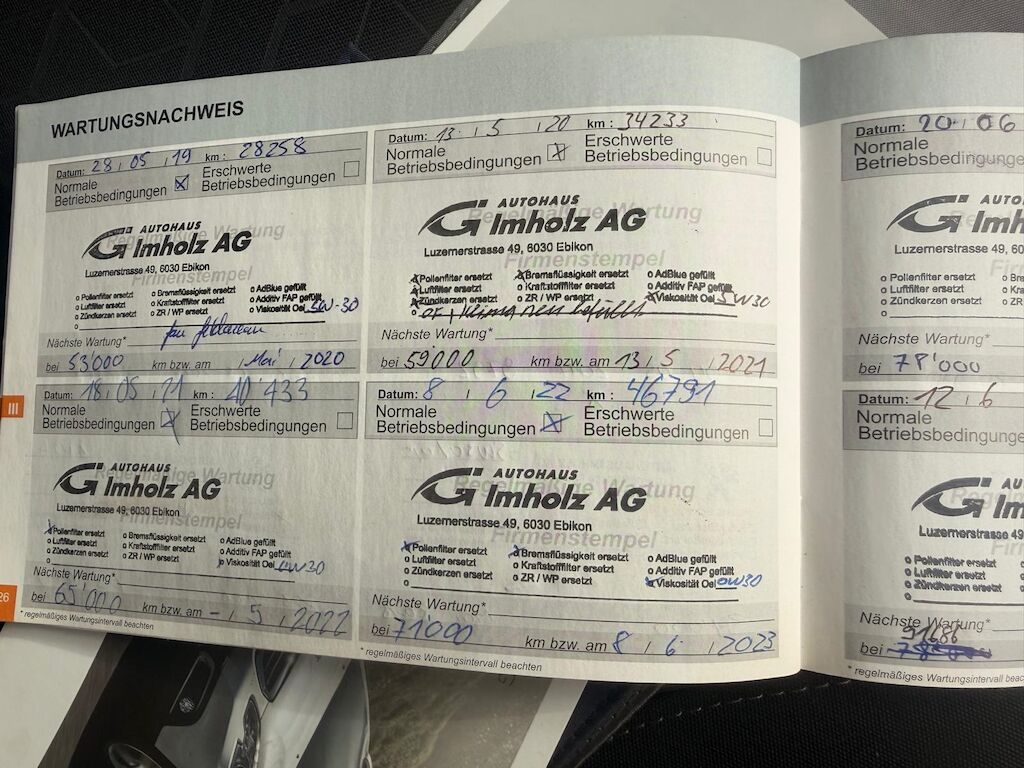 WARTUNGSNACHWEIS
Datum: 28 / 05 / 19 km : 28258
Normale Betriebsbedingungen ☒ Erschwerte Betriebsbedingungen ☐
Regelmäßige Wartung
AUTOHAUS
Imholz AG
Luzernerstrasse 49, 6030 Ebikon
Firmenstempel
o Pollenfilter ersetzt o Bremsflüssigkeit ersetzt o AdBlue gefüllt
o Luftfilter ersetzt o Kraftstofffilter ersetzt o Additiv FAP gefüllt
o Zündkerzen ersetzt o ZR / WP ersetzt o Viskosität Oel 5W-30
o
Nächste Wartung*
bei 53'000 km bzw. am / Mai / 2020
Datum: 13 / 5 / 20 km : 34233
Normale Betriebsbedingungen ☒ Erschwerte Betriebsbedingungen ☐
Regelmäßige Wartung
AUTOHAUS
Imholz AG
Luzernerstrasse 49, 6030 Ebikon
Firmenstempel
x Pollenfilter ersetzt x Bremsflüssigkeit ersetzt o AdBlue gefüllt
x Luftfilter ersetzt o Kraftstofffilter ersetzt o Additiv FAP gefüllt
x Zündkerzen ersetzt o ZR / WP ersetzt x Viskosität Oel 5W30
o
Nächste Wartung*
bei 59000 km bzw. am 13 / 5 / 2021
Datum: 18 / 05 / 21 km : 40'433
Normale Betriebsbedingungen ☒ Erschwerte Betriebsbedingungen ☐
Regelmäßige Wartung
AUTOHAUS
Imholz AG
Luzernerstrasse 49, 6030 Ebikon
Firmenstempel
x Pollenfilter ersetzt o Bremsflüssigkeit ersetzt o AdBlue gefüllt
o Luftfilter ersetzt o Kraftstofffilter ersetzt o Additiv FAP gefüllt
o Zündkerzen ersetzt o ZR / WP ersetzt x Viskosität Oel 0W30
o
Nächste Wartung*
bei 65'000 km bzw. am - / 5 / 2022
* regelmäßiges Wartungsintervall beachten
Datum: 8 / 6 / 22 km : 46791
Normale Betriebsbedingungen ☒ Erschwerte Betriebsbedingungen ☐
Regelmäßige Wartung
AUTOHAUS
Imholz AG
Luzernerstrasse 49, 6030 Ebikon
Firmenstempel
x Pollenfilter ersetzt x Bremsflüssigkeit ersetzt o AdBlue gefüllt
o Luftfilter ersetzt o Kraftstofffilter ersetzt o Additiv FAP gefüllt
o Zündkerzen ersetzt o ZR / WP ersetzt x Viskosität Oel 0W30
o
Nächste Wartung*
bei 71'000 km bzw. am 8 / 6 / 2023
* regelmäßiges Wartungsintervall beachten
III
26
Datum: 20 / 06
Normale
Betriebsbedingunge
AUTO
Imh
Luzernerstrasse 49, 60
o Pollenfilter ersetzt o Br
o Luftfilter ersetzt o Kra
o Zündkerzen ersetzt o ZR
o
Nächste Wartung*
bei 78'000
Datum: 12 / 6
Normale
Betriebsbedingunge
AU
Im
Luzernerstrasse 49,
o Pollenfilter ersetzt
o Luftfilter ersetzt
o Zündkerzen ersetzt
o
Nächste Wartung*
91686
bei
* regelmäßiges Wartungsintervall bea